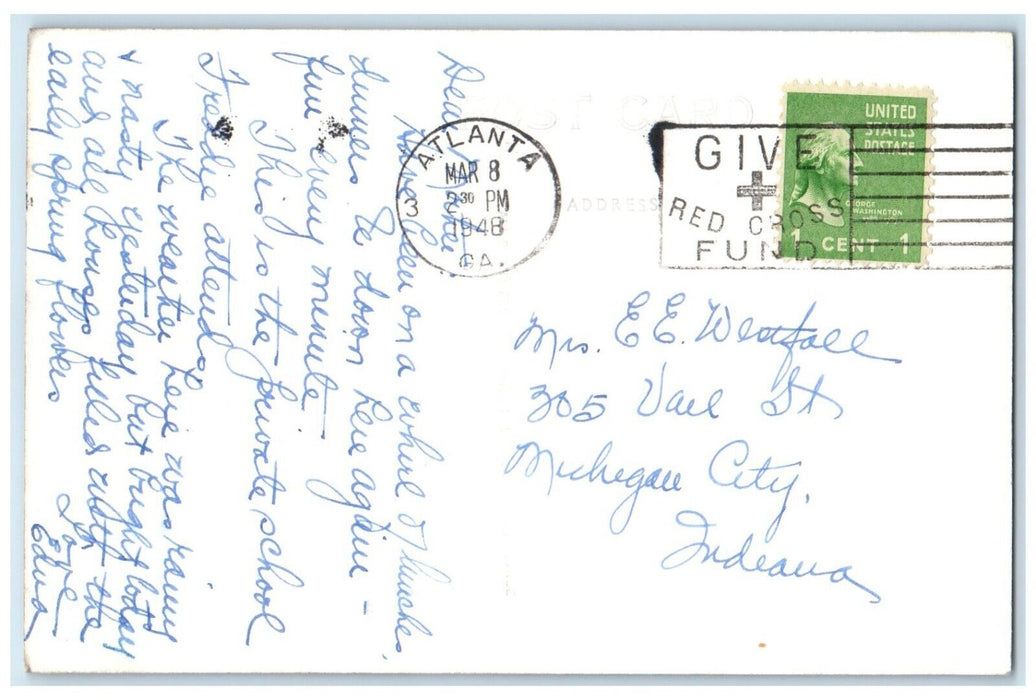 POST CARD
ADDRESS
Dear
Have been on a whirl of lunches,
dinners down here again -
fun every minute
This is the private school
Freddie attends
The weather here was rainy
& nasty yesterday but bright today
and all houses filled with the
early spring flowers
Love
Edna
ATLANTA
MAR 8
2 30 PM
3
1948
GA.
GIVE
RED CROSS
FUND
UNITED
STATES
POSTAGE
GEORGE
WASHINGTON
1 CENT 1
Mrs. E E. Westfall
305 Vail St
Michigan City,
Indiana